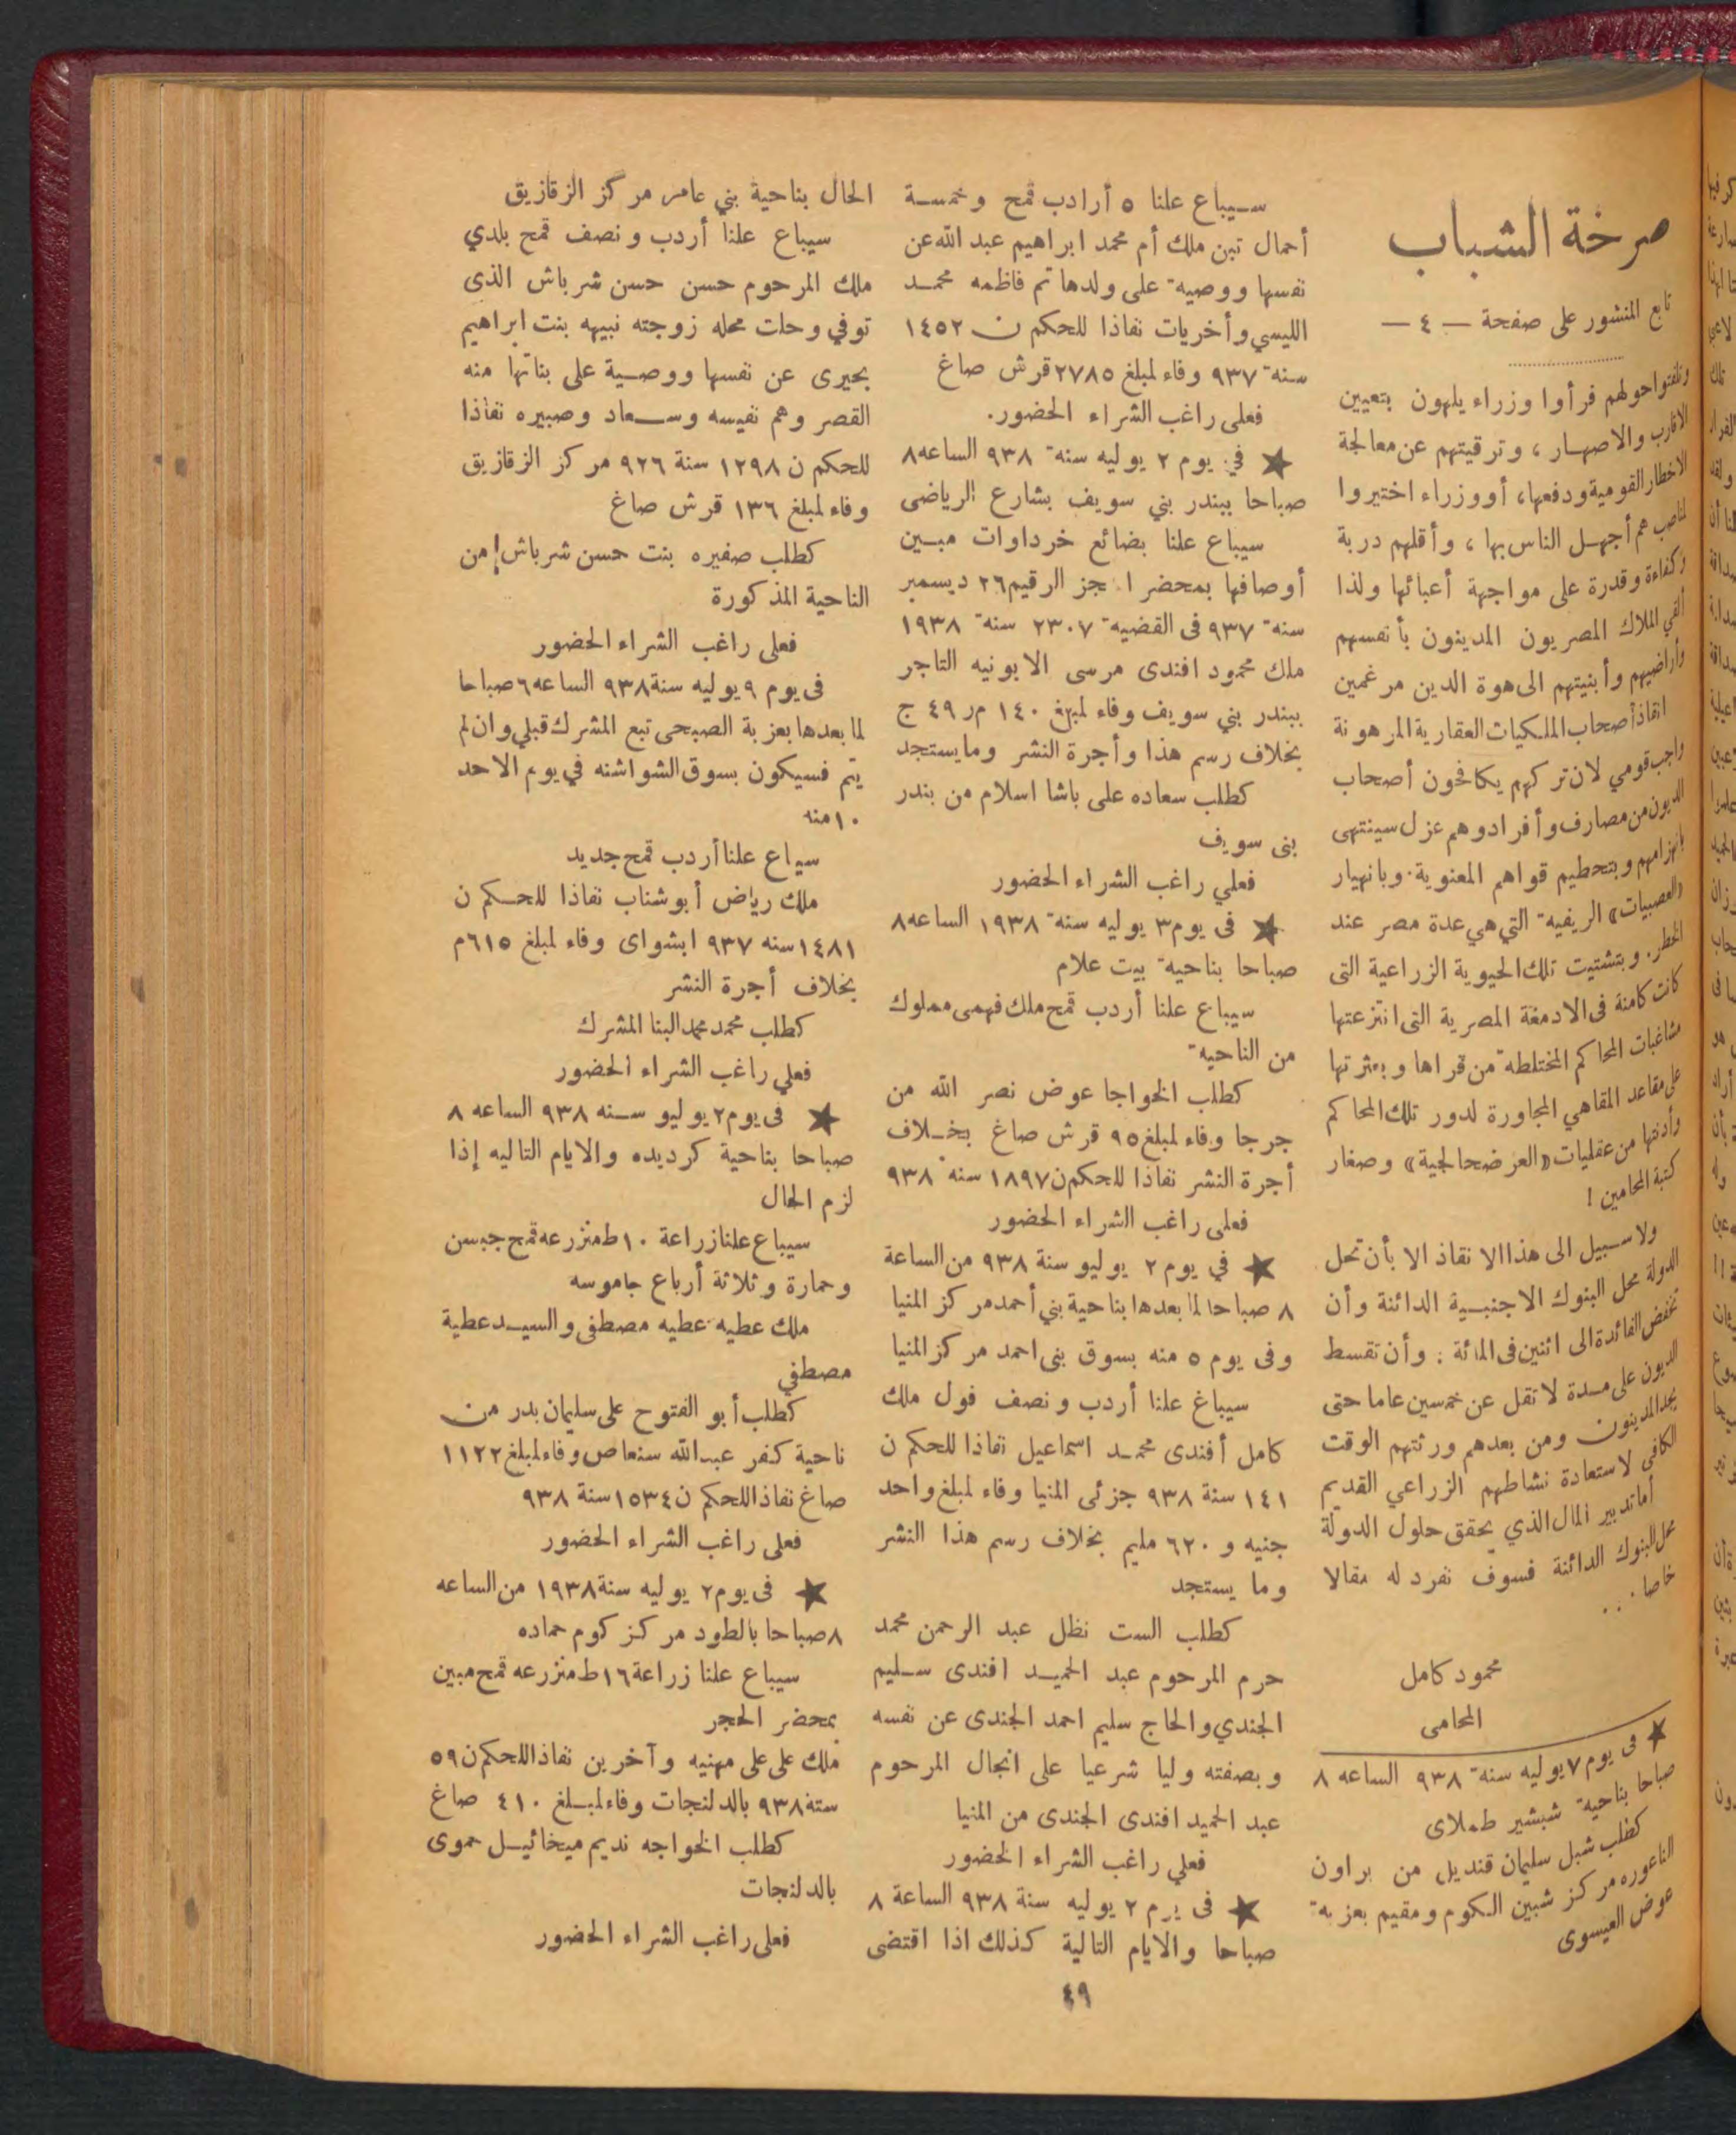 صرخة الشباب
تابع المنشور على صفحة — ٤ —
وتلفتوا حولهم فرأوا وزراء يلهون بتعيين
الاقارب والاصهار ، وترقيتهم عن معالجة
الاخطار القومية ودفعها، أو وزراء اختيروا
لمناصب هم أجهل الناس بها ، وأقلهم دربة
وكفاءة وقدرة على مواجهة أعبائها ولذا
ألقي الملاك المصريون المدينون بأنفسهم
وأراضيهم وأبنيتهم الى هوة الدين مرغمين
انقاذ أصحاب الملكيات العقارية المرهونة
واجب قومي لان تركهم يكافحون أصحاب
الديون من مصارف وأفراد وهم عزل سينتهى
بانهزامهم وبتحطيم قواهم المعنوية . وبانهيار
«العصبيات» الريفية التي هي عدة مصر عند
الخطر . وبتشتيت تلك الحيوية الزراعية التى
كانت كامنة فى الادمغة المصرية التى انتزعتها
مشاغبات المحاكم المختلطة من قراها وبعثرتها
على مقاعد المقاهي المجاورة لدور تلك المحاكم
وأدنتها من عقليات «العرضحالجية» وصغار
كتبة المحامين !
ولا سبيل الى هذا الانقاذ الا بأن تحل
الدولة محل البنوك الاجنبية الدائنة وأن
تخفض الفائدة الى اثنين فى المائة : وأن تقسط
الديون على مدة لا تقل عن خمسين عاما حتى
يجد المدينون ومن بعدهم ورثتهم الوقت
الكافي لاستعادة نشاطهم الزراعي القديم
أما تدبير المال الذي يحقق حلول الدولة
محل البنوك الدائنة فسوف نفرد له مقالا
خاصا . . .
محمود كامل
المحامى
★ فى يوم ٧ يوليه سنة ٩٣٨ الساعه ٨
صباحا بناحية شبشير طملاى
كطلب شبل سليمان قنديل من براون
الناعوره مركز شبين الكوم ومقيم بعزبة
عوض العيسوى
سيباع علنا ٥ أرادب قمح وخمسة
أحمال تبن ملك أم محمد ابراهيم عبد الله عن
نفسها ووصية على ولدها تم فاظمه محمد
الليسي وأخريات نفاذا للحكم ن ١٤٥٢
سنة ٩٣٧ وفاء لمبلغ ٢٧٨٥ قرش صاغ
فعلى راغب الشراء الحضور.
★ في يوم ٢ يوليه سنة ٩٣٨ الساعه ٨
صباحا ببندر بني سويف بشارع الرياضى
سيباع علنا بضائع خرداوات مبين
أوصافها بمحضر ا جز الرقيم ٢٦ ديسمبر
سنة ٩٣٧ فى القضية ٢٣٠٧ سنة ١٩٣٨
ملك محمود افندى مرسى الابونيه التاجر
ببندر بني سويف وفاء لمبلغ ١٤٠ م ر ٤٩ ج
بخلاف رسم هذا وأجرة النشر وما يستجد
كطلب سعاده على باشا اسلام من بندر
بنى سويف
فعلي راغب الشراء الحضور
★ فى يوم ٣ يوليه سنة ١٩٣٨ الساعه ٨
صباحا بناحية بيت علام
سيباع علنا أردب قمح ملك فهمى مملوك
من الناحية
كطلب الخواجا عوض نصر الله من
جرجا وفاء لمبلغ ٩٥ قرش صاغ بخلاف
أجرة النشر نفاذا للحكم ن ١٨٩٧ سنة ٩٣٨
فعلى راغب الشراء الحضور
★ في يوم ٢ يوليو سنة ٩٣٨ من الساعة
٨ صباحا لما بعدها بناحية بني أحمد مركز المنيا
وفى يوم ٥ منه بسوق بنى احمد مركز المنيا
سيباع علنا أردب ونصف فول ملك
كامل أفندى محمد اسماعيل نفاذا للحكم ن
١٤١ سنة ٩٣٨ جزئى المنيا وفاء لمبلغ واحد
جنيه و ٦٢٠ مليم بخلاف رسم هذا النشر
وما يستجد
كطلب الست نظل عبد الرحمن محمد
حرم المرحوم عبد الحميد افندى سليم
الجندي والحاج سليم احمد الجندى عن نفسه
وبصفته وليا شرعيا على انجال المرحوم
عبد الحميد افندى الجندى من المنيا
فعلي راغب الشراء الحضور
★ فى يرم ٢ يوليه سنة ٩٣٨ الساعة ٨
صباحا والايام التالية كذلك اذا اقتضى
الحال بناحية بني عامر مركز الزقازيق
سيباع علنا أردب ونصف قمح بلدي
ملك المرحوم حسن حسن شرباش الذى
توفي وحلت محله زوجته نبيهه بنت ابراهيم
بحيرى عن نفسها ووصية على بناتها منه
القصر وهم نفيسه وسعاد وصبيره نفاذا
للحكم ن ١٢٩٨ سنة ٩٢٦ مركز الزقازيق
وفاء لمبلغ ١٣٦ قرش صاغ
كطلب صفيره بنت حسن شرباش من
الناحية المذكورة
فعلى راغب الشراء الحضور
فى يوم ٩ يوليه سنة ٩٣٨ الساعه ٦ صباحا
لما بعدها بعزبة الصبحى تبع المشرك قبلي وان لم
يتم فسيكون بسوق الشواشنه في يوم الاحد
١٠ منه
سيباع علنا أردب قمح جديد
ملك رياض أبو شناب نفاذا للحكم ن
١٤٨١ سنه ٩٣٧ ابشواى وفاء لمبلغ ٦١٥ م
بخلاف أجرة النشر
كطلب محمد محمد البنا المشرك
فعلي راغب الشراء الحضور
★ فى يوم ٢ يوليو سنه ٩٣٨ الساعه ٨
صباحا بناحية كرديده والايام التاليه إذا
لزم الحال
سيباع علنا زراعة ١٠ ط منزرعه قمح جبسن
وحمارة وثلاثة أرباع جاموسه
ملك عطيه عطيه مصطفى والسيد عطية
مصطفي
كطلب أبو الفتوح على سليمان بدر من
ناحية كفر عبد الله سنعاص وفاء لمبلغ ١١٢٢
صاغ نفاذا للحكم ن ١٥٣٤ سنة ٩٣٨
فعلى راغب الشراء الحضور
★ فى يوم ٢ يوليه سنة ١٩٣٨ من الساعه
٨ صباحا بالطود مركز كوم حماده
سيباع علنا زراعة ١٦ ط منزرعه قمح مبين
بمحضر الحجر
ملك على على مهنيه وآخرين نفاذا للحكم ن ٥٩
ستة ٩٣٨ بالدلنجات وفاء لمبلغ ٤١٠ صاغ
كطلب الخواجه نديم ميخائيل حموى
بالدلنجات
فعلى راغب الشراء الحضور
٤٩